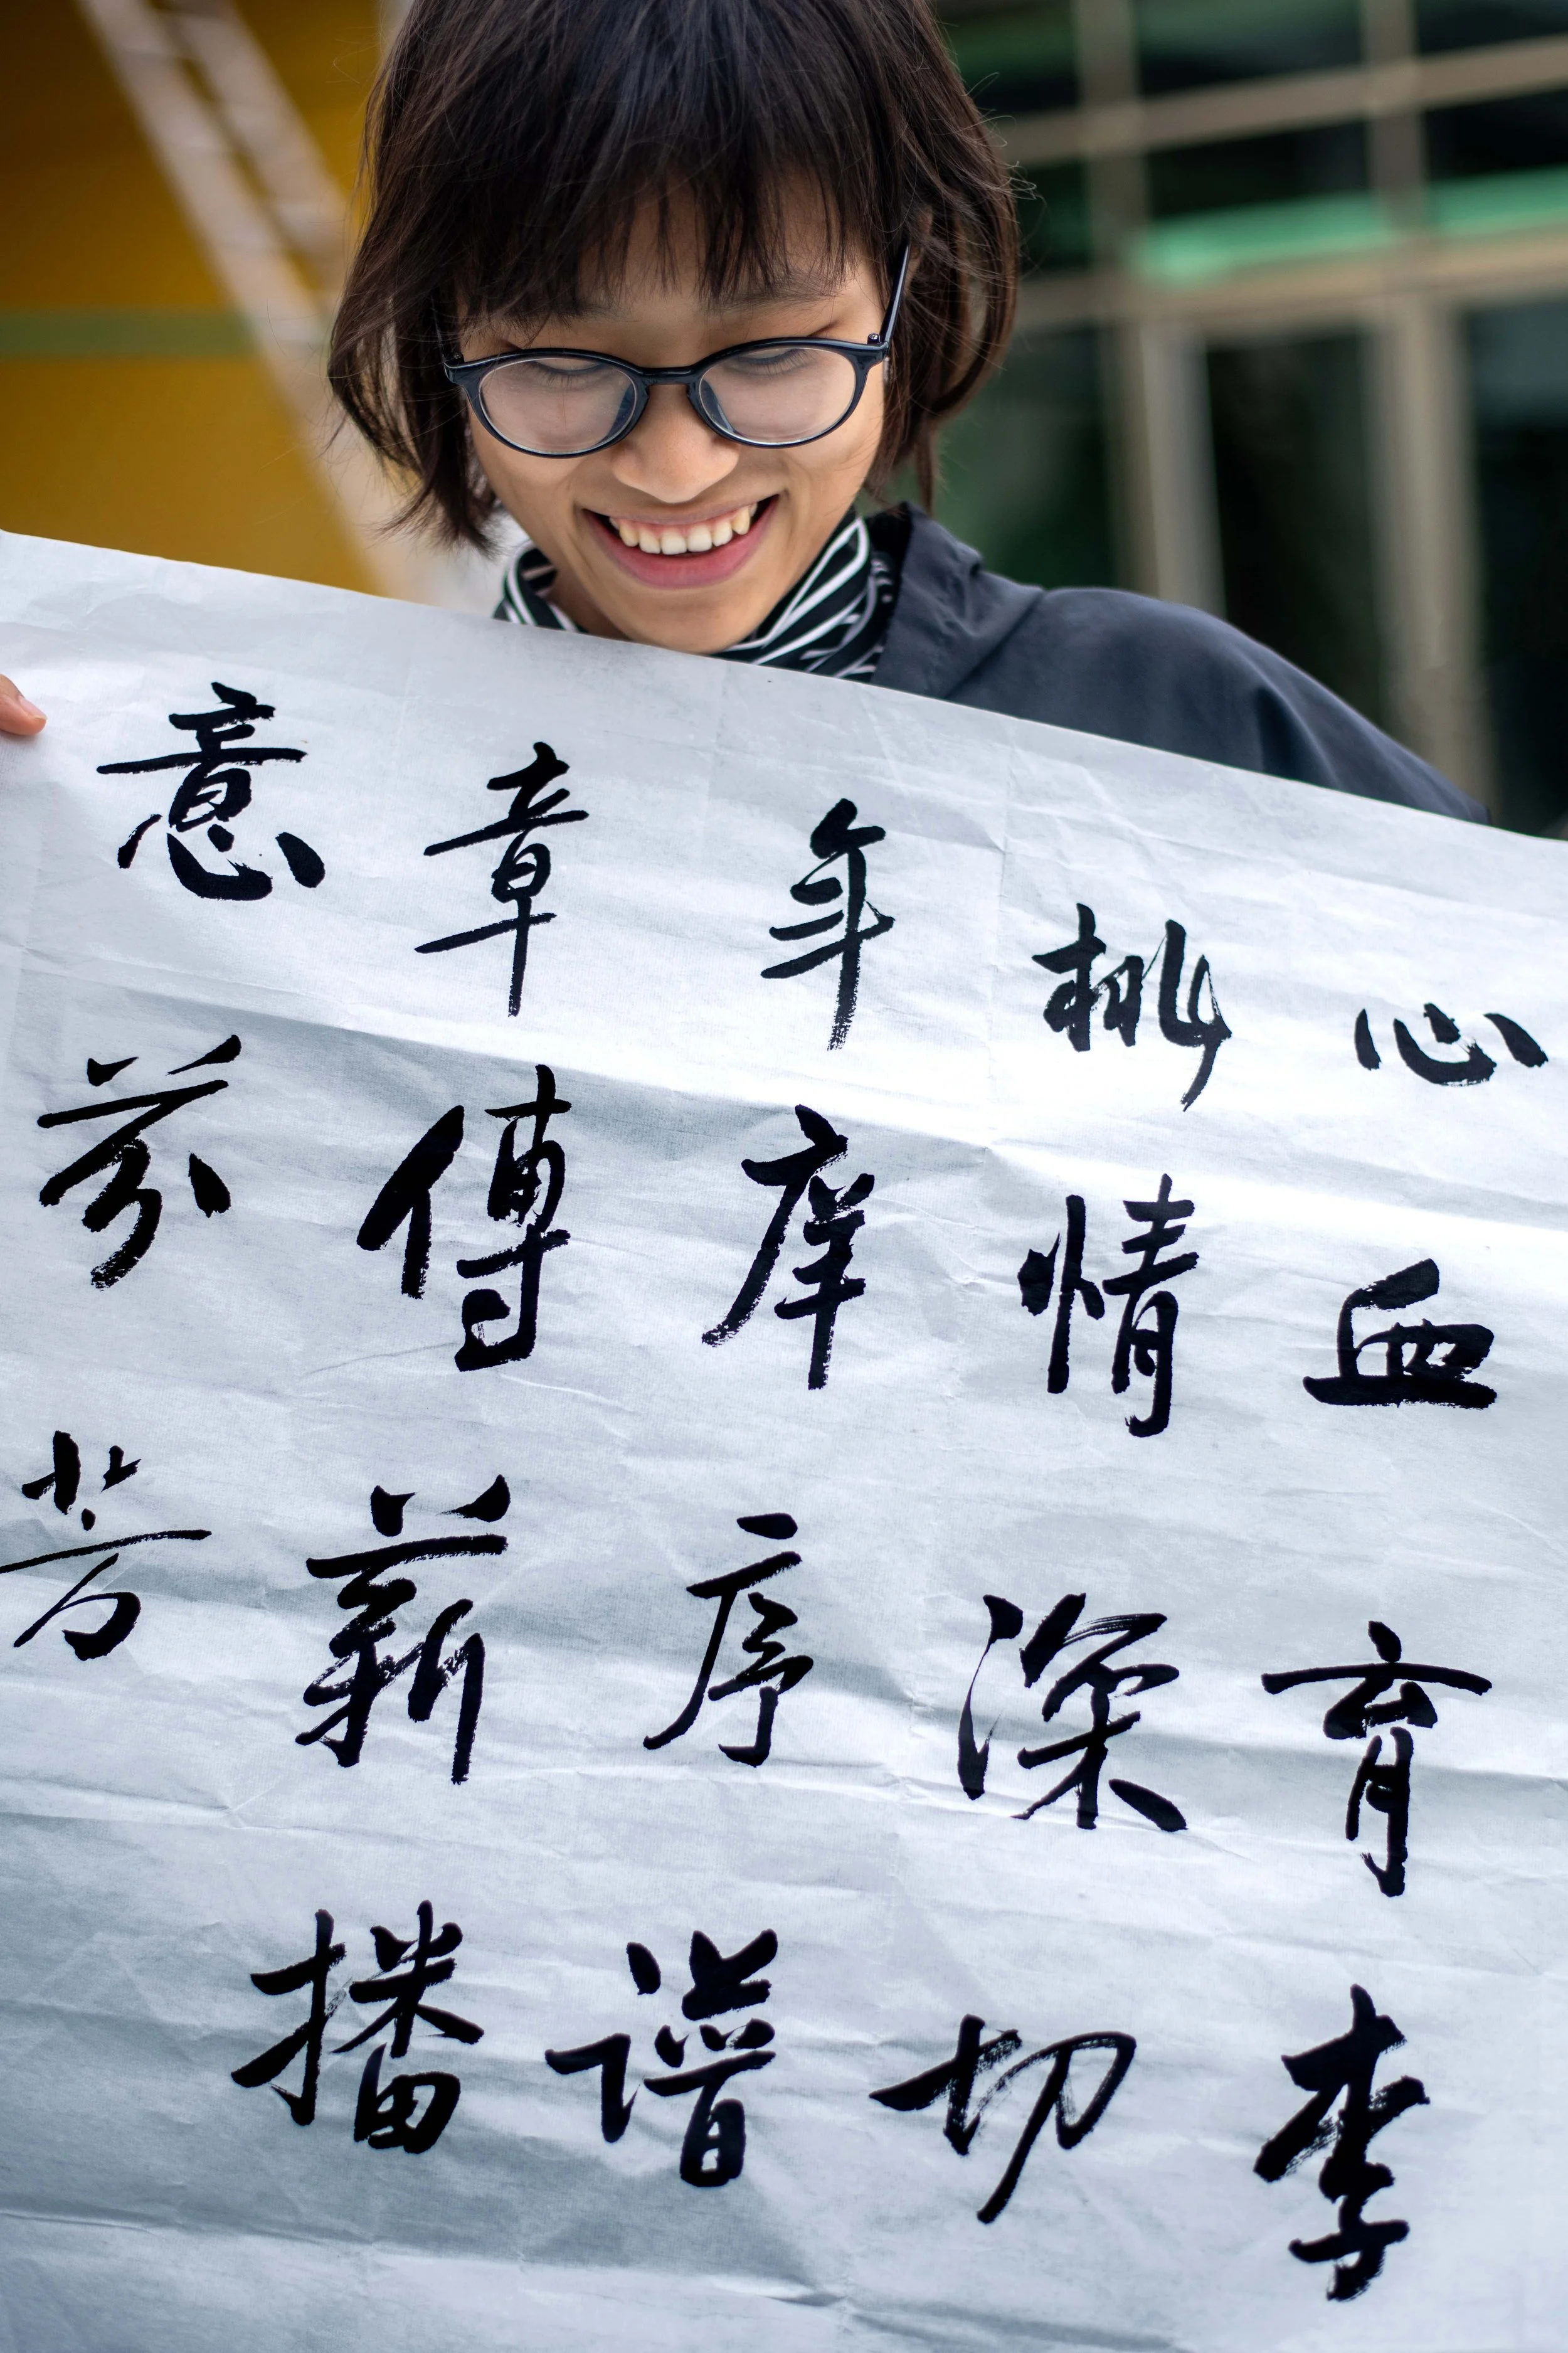 心血育李
桃情深切
年庠序譜
章傳薪播
意芬芳